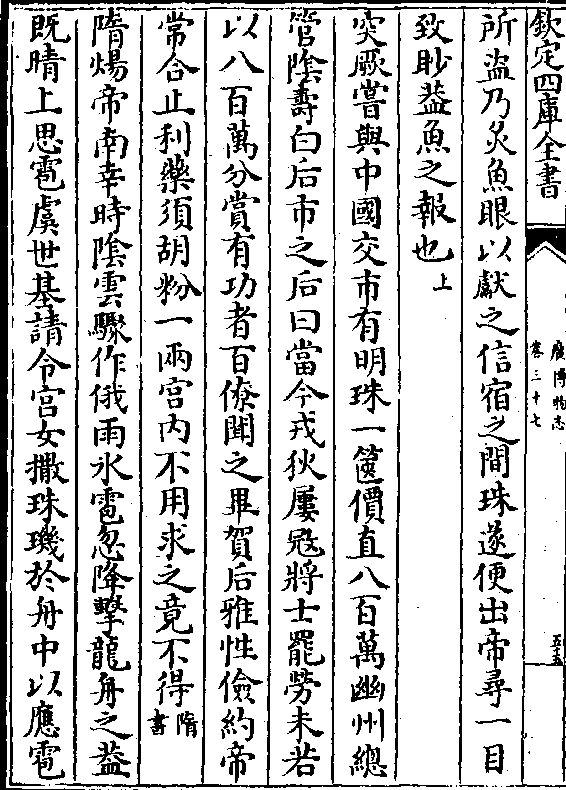 欽定四庫全書
廣博物志
卷三十七
五十五
所盜乃炙魚眼以獻之信宿之間珠遂便出帝尋一目
致眇蓋魚之報也上
突厥嘗與中國交市有明珠一篋價直八百萬幽州總
管陰壽白后市之后曰當今戎狄屢寇將士罷勞未若
以八百萬分賞有功者百僚聞之畢賀后雅性儉約帝
常合止利藥須胡粉一兩宮內不用求之竟不得隋書
隋煬帝南幸時陰雲驟作俄雨氷雹忽降擊龍舟之葢
既晴上思雹虞世基請令宮女撒珠璣於舟中以應雹